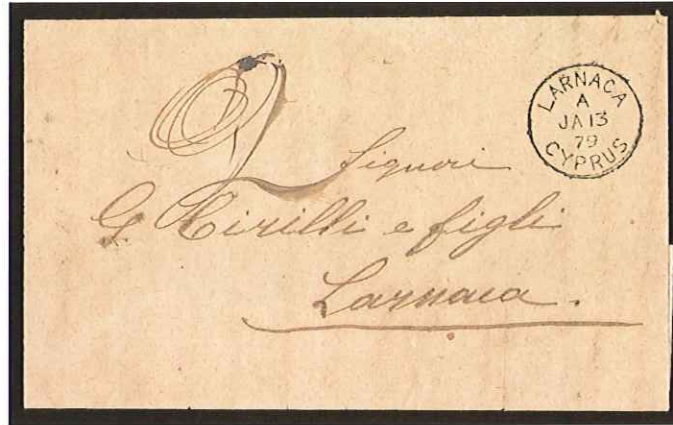 2
LARNACA
A
JA 13
79
CYPRUS
Signori
G. Cirilli e figli
Larnaca.